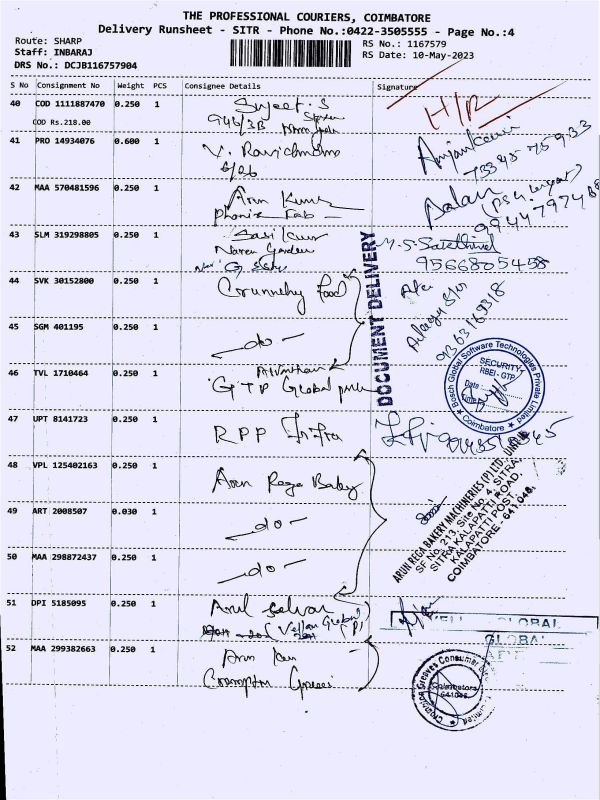 THE PROFESSIONAL COURIERS, COIMBATORE
Delivery Runsheet - SITR - Phone No.:0422-3505555 - Page No.:4
Route: SHARP
Staff: INBARAJ
DRS No.: DCJB116757904
RS No.: 1167579
RS Date: 10-May-2023
S No Consignment No Weight PCS Consignee Details Signature
40 COD 1111887470 0.250 1 Sujeet.S
COD Rs.218.00 944/3B
H/R
41 PRO 14934076 0.600 1 V. Ravichandran
42 MAA 570481596 0.250 1 Arun Kumar
Phonix Fab
9944797488
43 SLM 319298805 0.250 1 Sasi Kumar
Naren Garden
M.S. Sakthivel
9566805458
44 SVK 30152800 0.250 1 Crunnchy Food
DOCUMENT DELIVERY
45 SGM 401195 0.250 1 -do-
46 TVL 1710464 0.250 1
GTP Global
Bosch Global Software Technologies Private Limited
SECURITY
RBEI - GTP
Date
Time
Coimbatore
47 UPT 8141723 0.250 1 RPP Infra
48 VPL 125402163 0.250 1 Arun Rega Bakery
ARUN REGA BAKERY MACHINERIES (P) LTD.,
SF No. 213, Site No. 4, SITRA,
SITRA KALAPATTI ROAD,
KALAPATTI POST,
COIMBATORE - 641 048.
49 ART 2008507 0.030 1 -do-
50 MAA 298872437 0.250 1 -do-
51 DPI 5185095 0.250 1 Arul Selvan
GLOBAL
GLOBAL
52 MAA 299382663 0.250 1 Arun
Crompton Greaves
Crompton Greaves Consumer Limited
Coimbatore